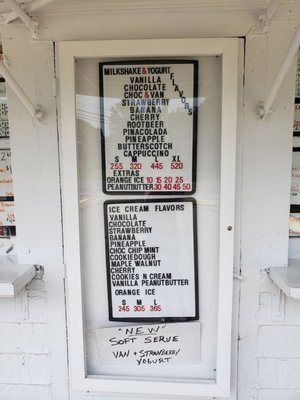 MILKSHAKE & YOGURT
FLAVORS
VANILLA
CHOCOLATE
CHOC & VAN
STRAWBERRY
BANANA
CHERRY
ROOTBEER
PINACOLADA
PINEAPPLE
BUTTERSCOTCH
CAPPUCCINO
S M L XL
255 320 445 520
EXTRAS
ORANGE ICE 10 15 20 25
PEANUTBUTTER 30 40 45 50
ICE CREAM FLAVORS
VANILLA
CHOCOLATE
STRAWBERRY
BANANA
PINEAPPLE
CHOC CHIP MINT
COOKIEDOUGH
MAPLE WALNUT
CHERRY
COOKIES N CREAM
VANILLA PEANUTBUTTER
ORANGE ICE
S M L
245 305 365
"NEW"
SOFT SERVE
VAN + STRAWBERRY
YOGURT